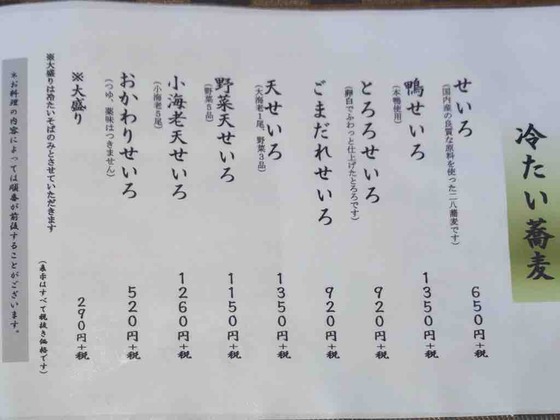 冷たい蕎麦
せいろ
(国内産の良質な原料を使った二八蕎麦です)
650円+税
鴨せいろ
(本鴨使用)
1350円+税
とろろせいろ
(卵白でふわっと仕上げたとろろです)
920円+税
ごまだれせいろ
920円+税
天せいろ
(大海老1尾、野菜3品)
1350円+税
野菜天せいろ
(野菜5品)
1150円+税
小海老天せいろ
(小海老5尾)
1260円+税
おかわりせいろ
(つゆ、薬味はつきません)
520円+税
※大盛り
290円+税
※大盛りは冷たいそばのみとさせていただきます
(表示はすべて税抜き価格です)
※お料理の内容によっては順番が前後することがございます。